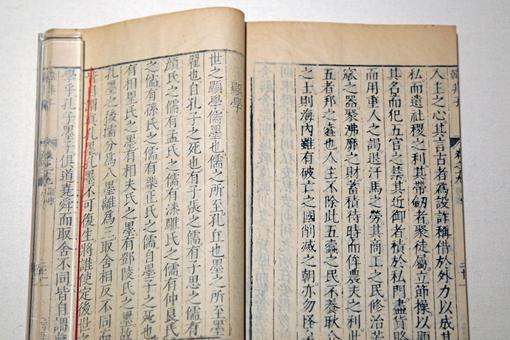 韓非子
人主之心其言古者為設詐稱借於外力以成其
私而遺社稷之利其帶劒者聚徒屬立節操以顯
其名而犯五官之禁其近御者積於私門盡貨賂
而用重人之謁退汗馬之勞其商工之民修治苦
窳之器聚沸靡之財蓄積待時而侔農夫之利此
五者邦之蠹也人主不除此五蠹之民不養耿
之王則海內雖有破亡之國削滅之朝亦勿怪
顯學
世之顯學儒墨也儒之所至孔丘也墨之所至墨
翟也自孔子之死也有子張之儒有子思之儒有
顏氏之儒有孟氏之儒有漆雕氏之儒有仲良氏
之儒有孫氏之儒有樂正氏之儒自墨子之死也
有相里氏之墨有相夫氏之墨有鄧陵氏之墨故
孔墨之後儒分為八墨離為三取舍相反不同
謂真孔墨孔墨不可復生將誰使定後世之
學乎孔子墨子俱道堯舜而取舍不同皆自謂